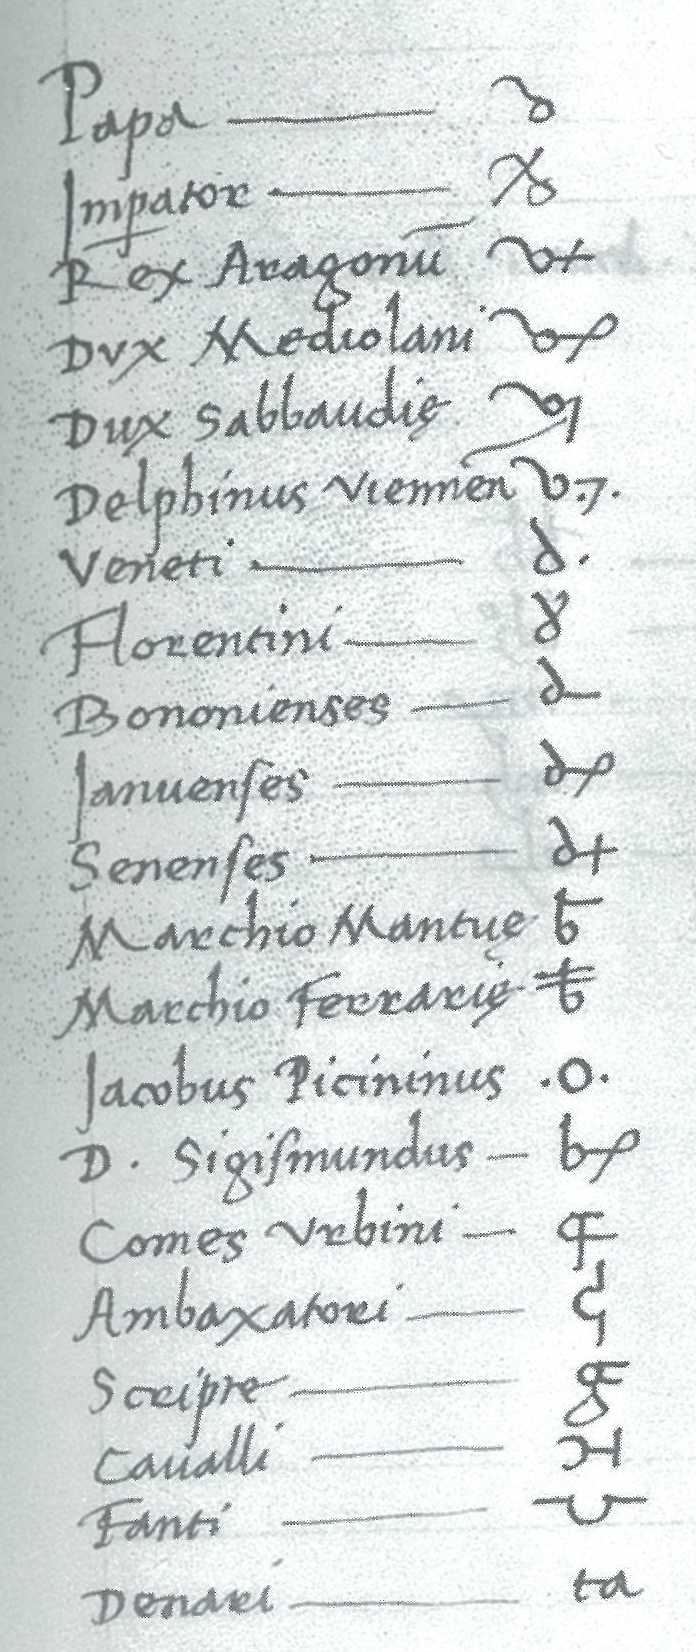 Papa
Impator
Rex Aragonū
Dux Mediolani
Dux Sabbaudię
Delphinus Viennen̄
Veneti
Florentini
Bononienses
Januenſes
Senenſes
Marchio Mantuę
Marchio Ferrarię
Jacobus Picininus .o.
D. Sigiſmundus
Comes Urbini
Ambaxatori
Scripre
Caualli
Fanti
Denari ta